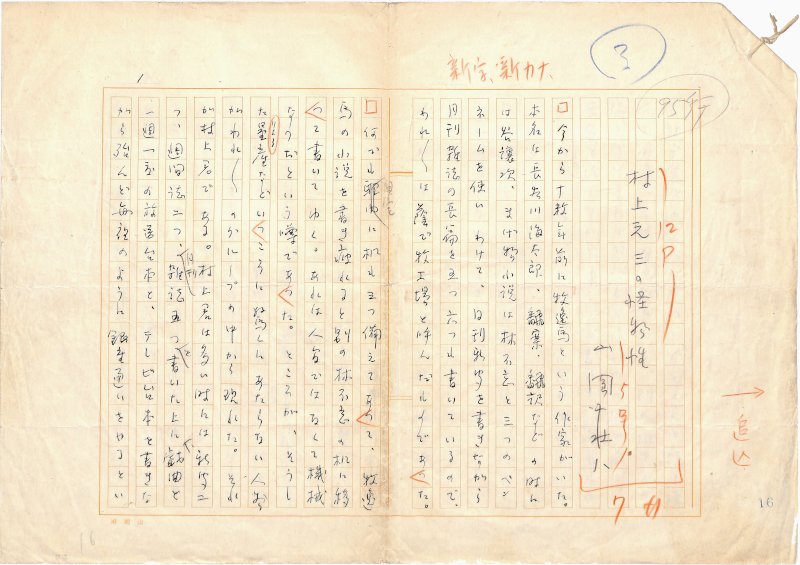 了
新字、新カナ
95
村上元三の怪物性
12P
山岡荘八
15号
追込
今から十数年前に牧逸馬という作家がいた。
本名は長谷川海太郎、翻案、翻訳などの時に
は谷譲次、まげ物小説は林不忘と三つのペン
ネームを使いわけて、日刊新聞を書きながら
月刊雑誌の長篇を五つ六つも書いているので、
われ〱は蔭で牧工場と呼んだものであった。
何でも に机も三つ備えてあって、牧逸
馬の小説を書き疲れると別の林不忘の机に移
って書いてゆく。あれは人間ではなくて機械
なのだという噂であった。ところが、そうし
た量産など に驚くにあたらない人物
がわれ〱のグループの中から現れた。それ
が村上君である。村上君は多い時には新聞二
つ、週間誌二つ、月刊雑誌五つ書いた上に戯曲と
一週一度の放送台本と、テレビ台本を書きな
がら殆んど毎夜のように銀座通いをやるとい
16
16